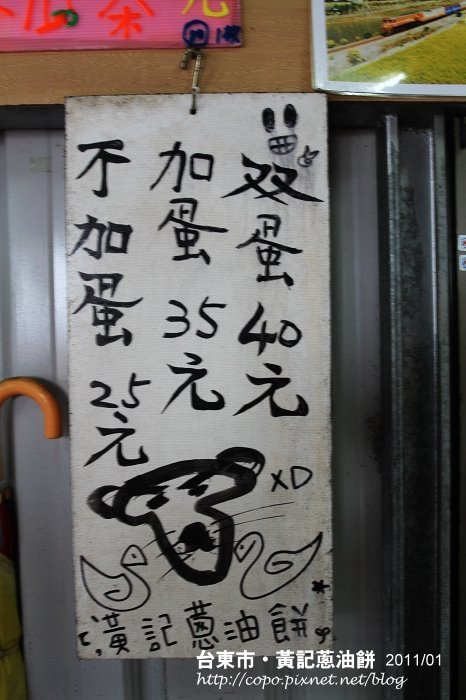 双蛋 40元
加蛋 35元
不加蛋 25元
XD
黃記蔥油餅
台東市・黃記蔥油餅 2011/01
http://copo.pixnet.net/blog